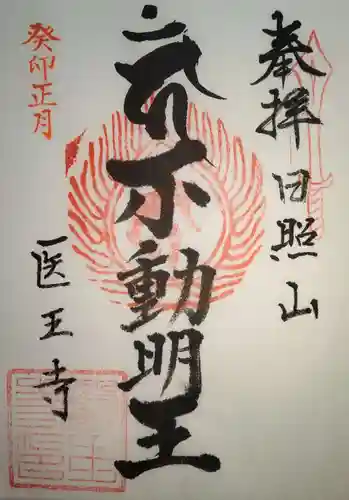 奉拝 日照山
不動明王
医王寺
癸卯正月